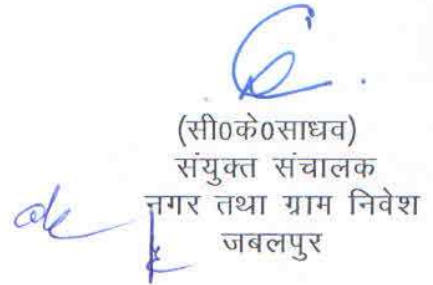 (सी0के0साधव)
संयुक्त संचालक
नगर तथा ग्राम निवेश
जबलपुर